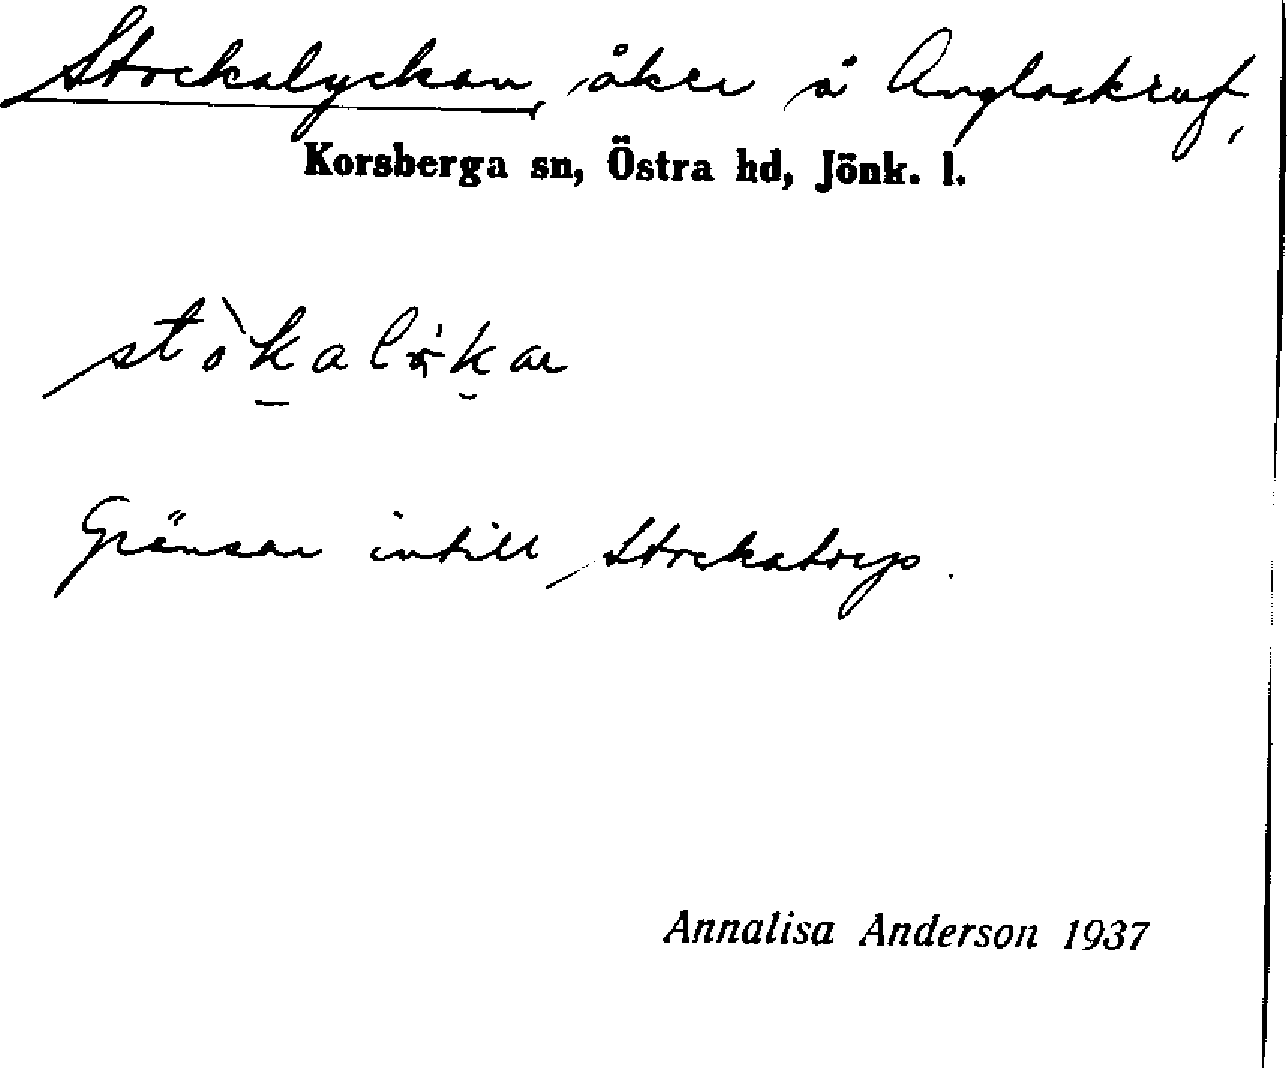 Stockalyckan, åker å Anglaskruf,
Korsberga sn, Östra hd, Jönk. l.
Gränsar intill Stockatorp.
Annalisa Anderson 1937